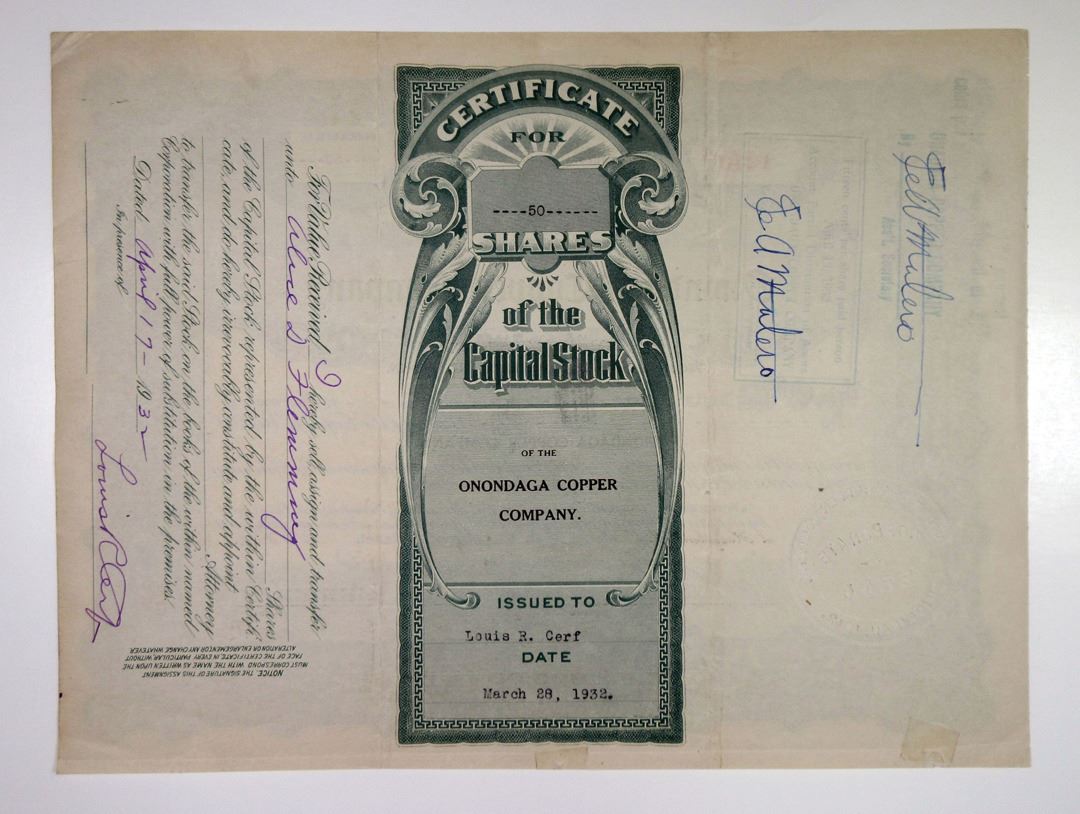 CERTIFICATE
FOR
----50------
SHARES
of the
Capital Stock
OF THE
ONONDAGA COPPER
COMPANY.
ISSUED TO
Louis R. Cerf
DATE
March 28, 1932.
For Value Received I hereby sell, assign and transfer
unto Aline D Flemming
Shares
of the Capital Stock represented by the within Certifi-
cate, and do hereby irrevocably constitute and appoint
Attorney
to transfer the said Stock on the books of the within named
Corporation with full power of substitution in the premises.
Dated April 17- 1932
In presence of
Louis R Cerf
NOTICE. THE SIGNATURE OF THIS ASSIGNMENT
MUST CORRESPOND WITH THE NAME AS WRITTEN UPON THE
FACE OF THE CERTIFICATE, IN EVERY PARTICULAR, WITHOUT
ALTERATION OR ENLARGEMENT OR ANY CHANGE WHATEVER.